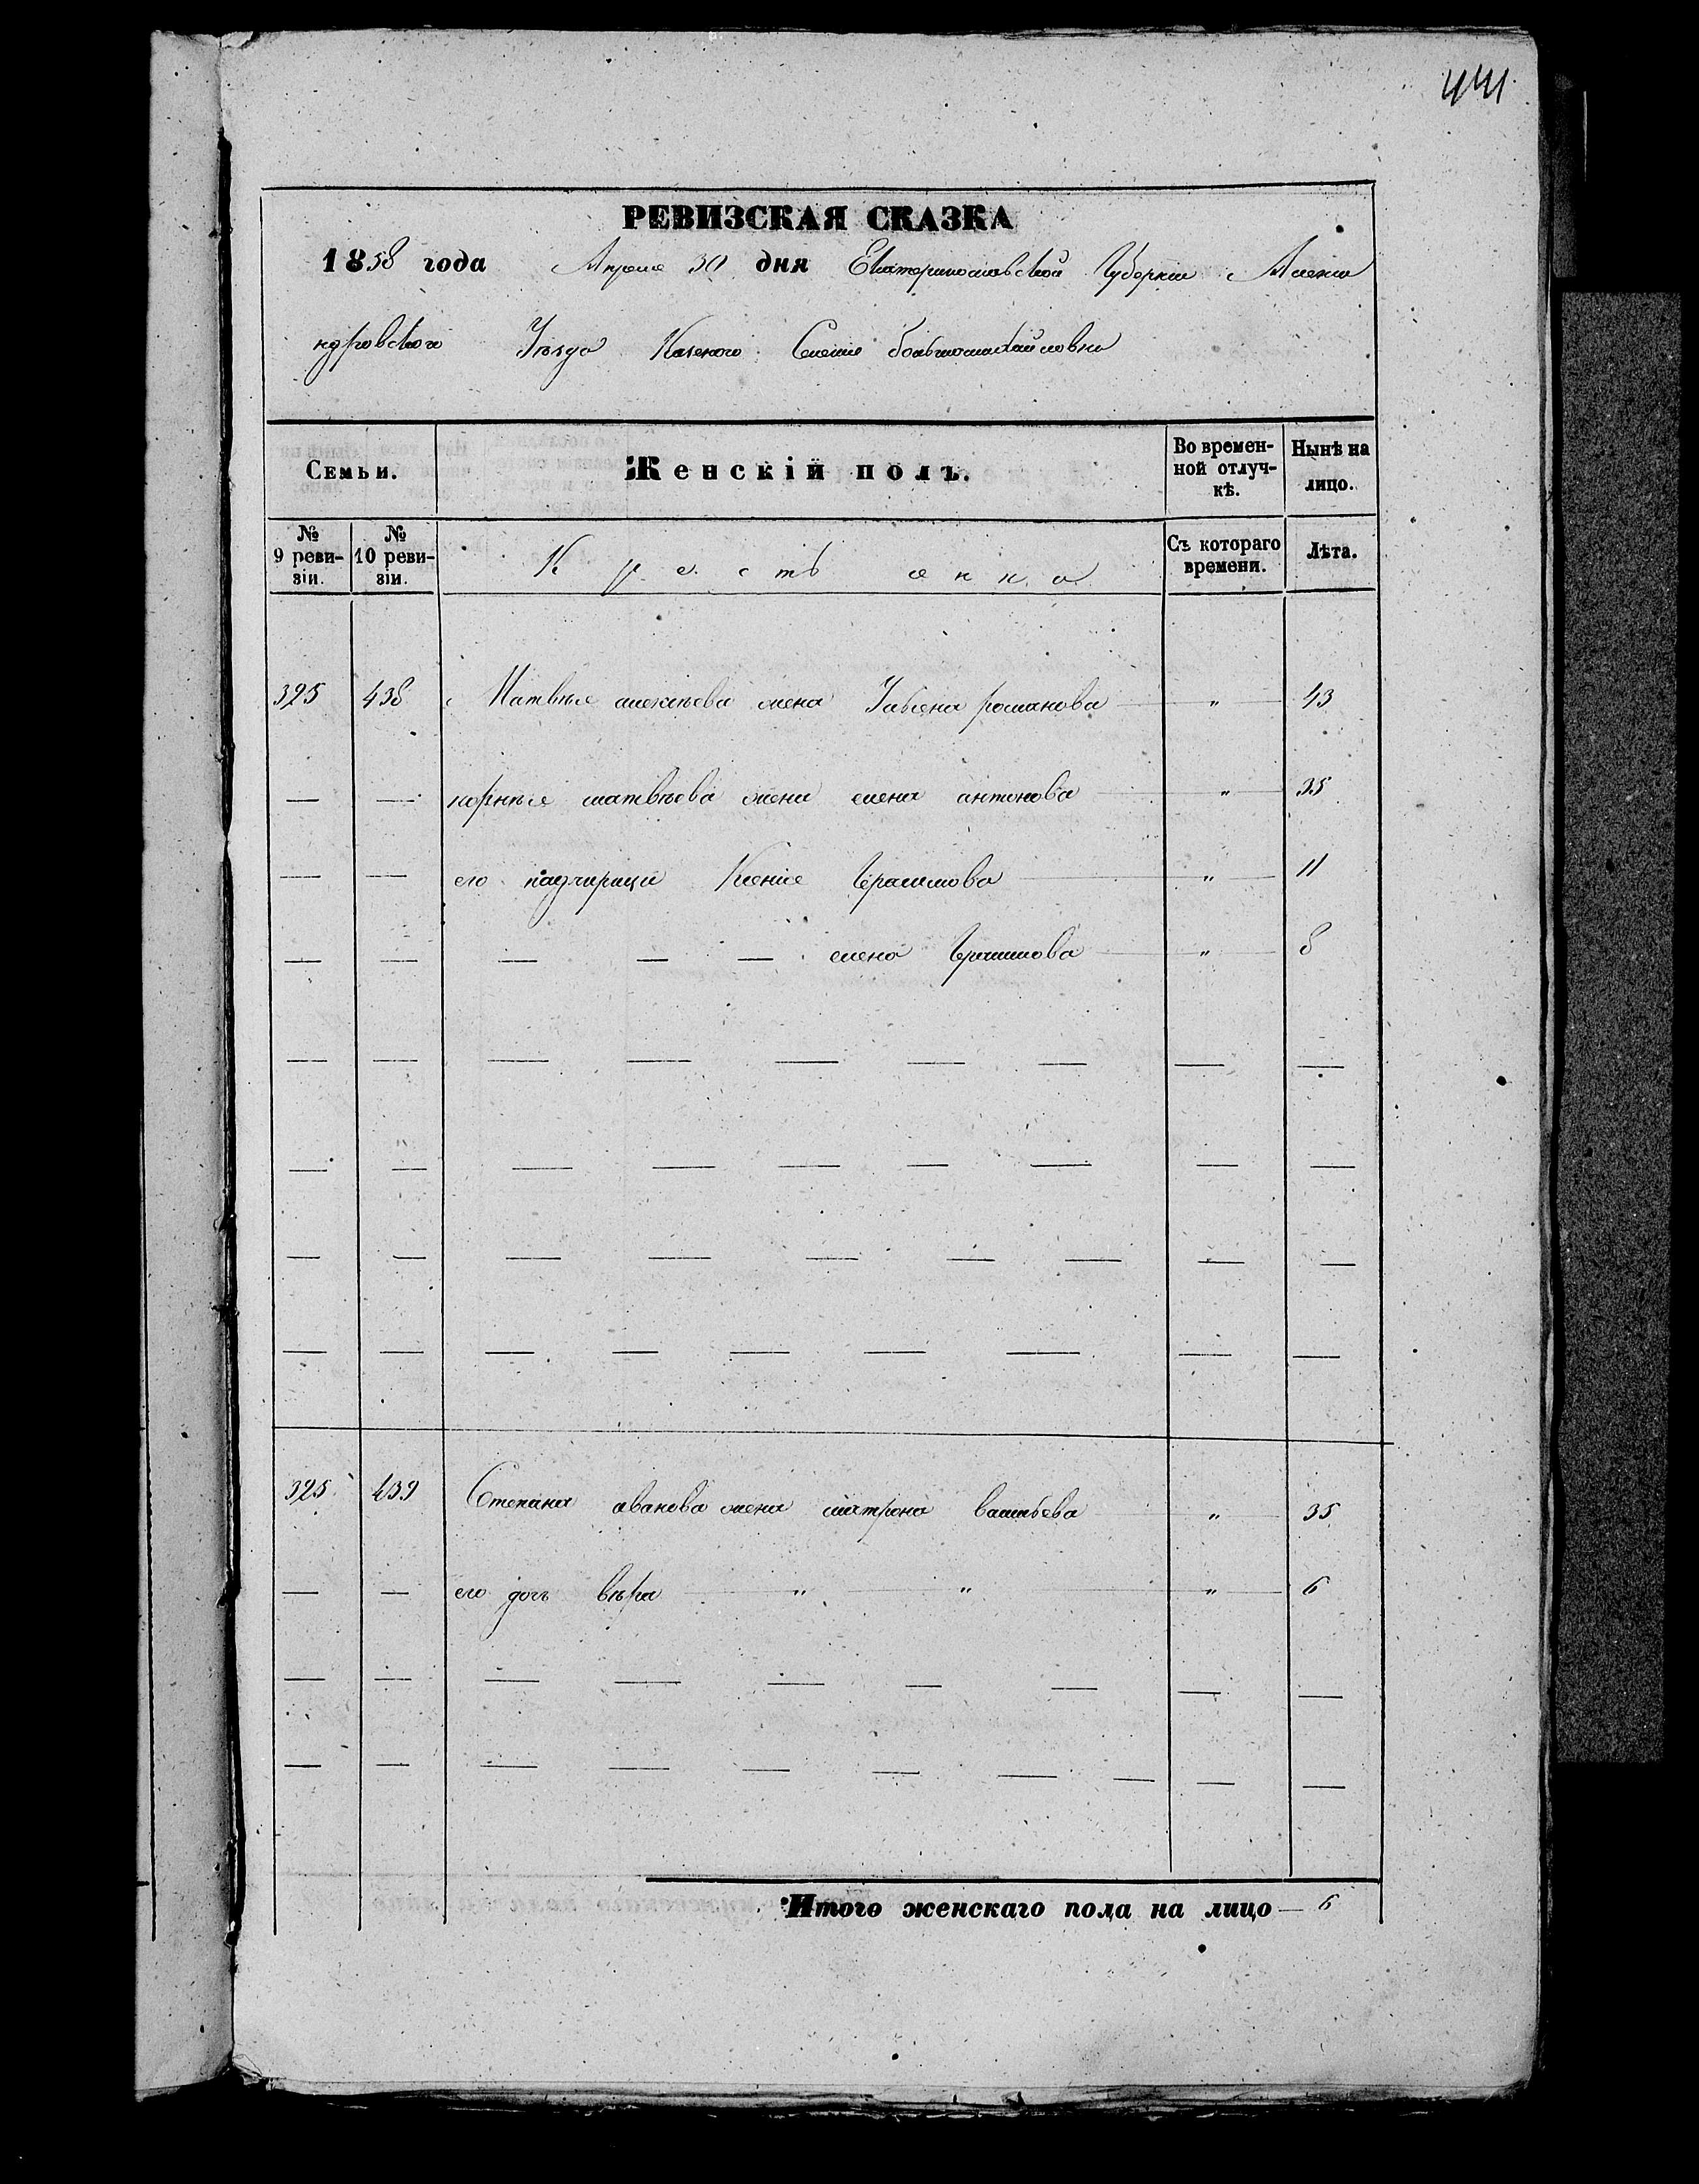 441
РЕВИЗСКАЯ СКАЗКА
1858 года Апреля 30 дня Екатеринославской Губернии Алекса
ндровского Уѣзда Казеного Селения большомихайловки
Семьи. Женскій полъ. Во времен-ной отлуч-кѣ. Нынѣ на лицо.
№ 9 реви-зіи. № 10 реви-зіи. Крестьянка Съ котораго времени. Лѣта.
325 438 Матвѣя алексѣева жена Ульяна романова " 43
— — корнѣя матвѣева жена елена антонова " 35
— — его падчирици Ксения Герасимова " 11
— — — — — елена Герасимова " 8
325 439 Степана иванова жена матрона васильева " 35
— — его дочь вѣра " " " 6
Итого женскаго пола на лицо — 6